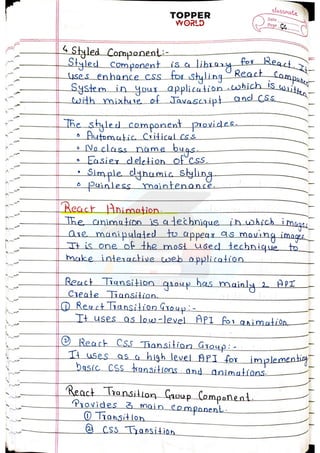 TOPPER
WORLD
classmate
Date
Page 50
4. Styled Component:-
Styled Component is a library for React. It
uses enhance css for styling React Component
System in your application. which is written
with mixture of Javascript and CSS.
The styled component provides.
• Automatic Critical css
• No class name bugs.
• Easier deletion of css.
• Simple dynamic styling
• painless maintenance.
React Animation
The animation is a technique in which images
are manipulated to appear as moving images.
It is one of the most used technique to
make interactive web application
React Transition group has mainly 2 API
Create Transition.
① React Transition Group:-
It uses as low-level API for animation
② React CSS Transition Group:-
It uses as a high level API for implementing
basic CSS transitions and animations.
React Transition Group Component.
Provides 3 main component.
① Transition
② CSS Transition